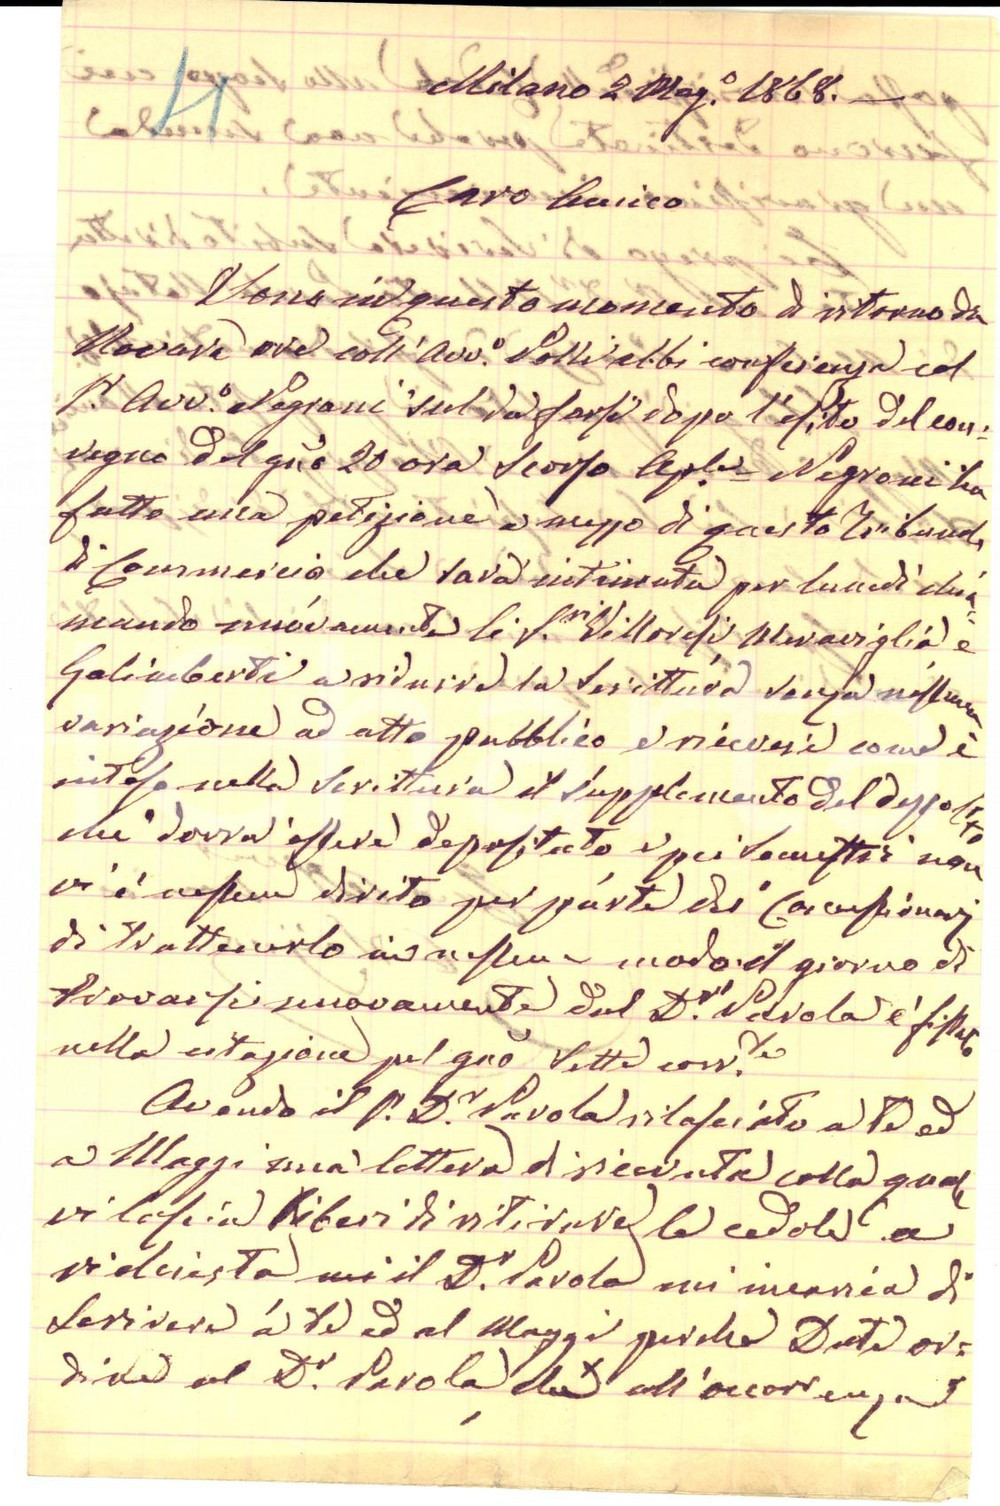 Milano 2 Mag.º 1868. —
Caro Amico
Sono in questo momento di ritorno da
Novara ove coll'Avv.º Polli ebbi conferenza col
S.r Avv.º Negroni sul da farsi dopo l'esito del con=
vegno del gno 20 ora scorso Aple= Negroni ha
fatto una petizione a mezzo di questo Tribunal
di Commercio che sarà intimata per lunedì chia=
mando nuovamente li S.ri Villoresi Meraviglia e
Galimberti a ridurre la Scrittura senza nessuna
variazione ad atto pubblico e ricevere come è
inteso nella Scrittura il supplemento del deposito
che dovrà essere depositato e poi non
vi è nessun dirito per parte dei Concessionarj
di trattenerlo in nessun modo il giorno di
trovarsi nuovamente dal D.r Pavola è fissato
nella citazione pel gno sette corr.te
Avendo il S. D.r Pavola rilasciato a te ed
a Maggi una lettera di ricevuta colla quale
vi lascia liberi di ritirare le cedole a
richiesta mi il D.r Pavola mi incarica di
scrivere à te ed al Maggi perche Date or=
dine al D.r Pavola che all'occorrenza